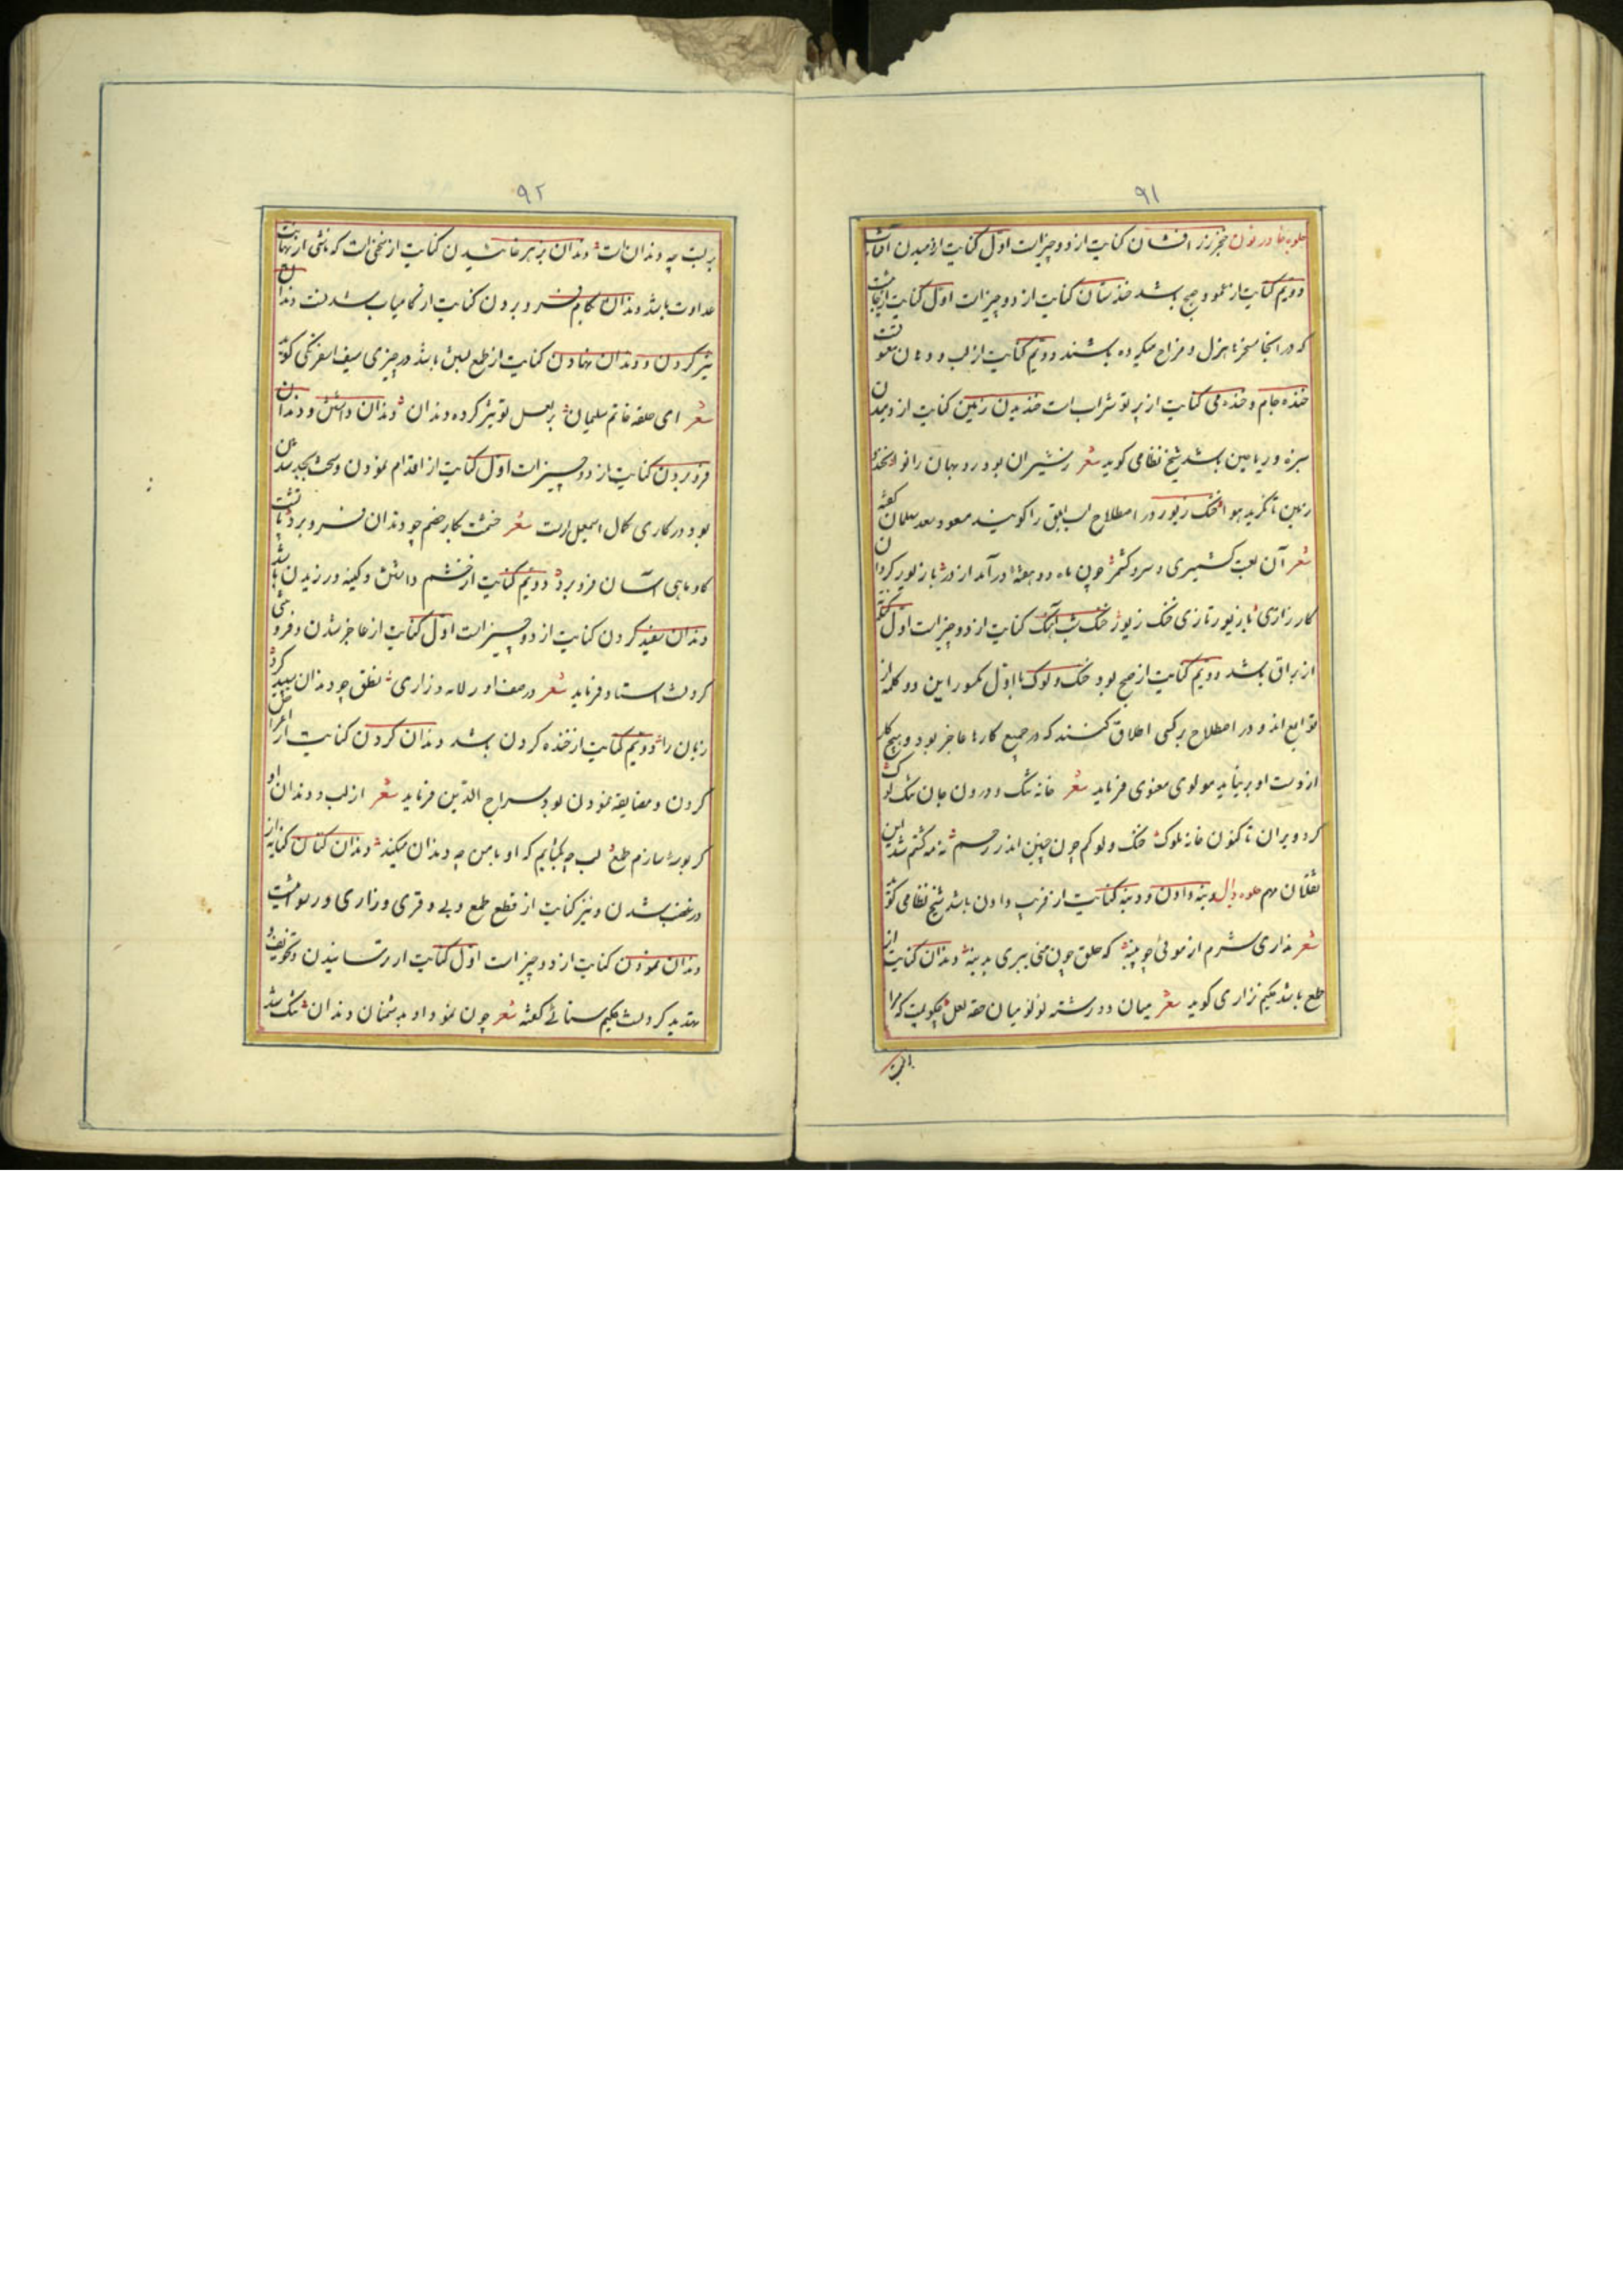 ۹۱
جلوه خا در نون خنجر زر افشان کنایت از دو چیز است اول کنایت از دمیدن آفتاب
دویم کنایت از نمود صبح باشد خندستان کنایت از دو چیز است اول کنایت از
که در آنجا مسخرها هزل و مزاح میکرده باشند دویم کنایت از لب و دهان معشوقست
خنده جام و خنده می کنایت از پرتو شراب است خندیدن زمین کنایت از دمیدن
سبزه و ریاحین باشد شیخ نظامی گوید شعر
زمین تا نگرید هوا خنگ زیور در اصطلاح اسب ابلق را گویند مسعود سعد سلمان گفته
شعر آن لعبت کشمیری و سرو کشمر چون ماه دو هفته در آمد از در با زیور
کارزاری با زیور تازی خنگ زیور خنگ شب آهنگ کنایت از دو چیز است اول
از براق باشد دویم کنایت از صبح بود خنگ و لوک با اول مکسور این دو کلمه از
توابع اند و در اصطلاح بر کسی اطلاق کنند که در جمیع کارها عاجز بود و هیچ کار
از دست او بر نیاید مولوی معنوی فرماید شعر خانه تنگ و درون جان تنگ لوک
کرد ویران تا کنون خانه ملوک خنگ و لوکم چون جنین اندر رحم نه مه گشتم شد این
نقلان مهم جلوه دال دنبه دادن و دنبه کنایت از فریب دادن باشد شیخ نظامی گوید
شعر نداری شرم از موئی چو پنبه که خلق چون منی ببری بدنبه دندان کنایت از
طمع باشد حکیم نزاری گوید شعر میان دو رشته لؤلؤ میان حقه لعل که مرا
۹۲
بر لبت چه دندان است دندان بزهر خائیدن کنایت از سخنی است که ناشی از نهایت
عداوت باشد دندان بکام فرو بردن کنایت از کامیاب شدنست دندان
تیز کردن و دندان نهادن کنایت از طمع بستن باشد در چیزی سیف اسفرنگی گوید
شعر ای حلقه خاتم سلیمان بر لعل تو تیز کرده دندان دندان داشتن و دندان
فرو بردن کنایت از دو چیز است اول کنایت از اقدام نمودن و سخت بجد شدن
بود در کاری کمال اسمعیل راست شعر خشمت بکار خصم چو دندان فرو برد تا پشت
گاو ماهی آسان فرو برد دویم کنایت از خشم داشتن و کینه ورزیدن باشد
دندان سفید کردن کنایت از دو چیز است اول کنایت از عاجز شدن و فروتنی
کردنست استاد فرماید شعر در صف او ر لابه و زاری نطق چو دندان سپید کرد
زبان را دویم کنایت از خنده کردن باشد دندان کردن کنایت از اعراض
کردن و مضایقه نمودن بود سراج الدین فرماید شعر از لب و دندان او
گر بوسه سازم طمع لب چه بگشایم که او با من چه دندان میکند دندان کنان کنایه از
در غضب شدن و نیز کنایت از قطع طمع و بی وقری و زاری و رسوائیست
دندان نمودن کنایت از دو چیز است اول کنایت از ترسانیدن و تخویف و
تهدید کردنست حکیم سنائی گفته شعر چون نمود او بدشمنان دندان تنگ شد